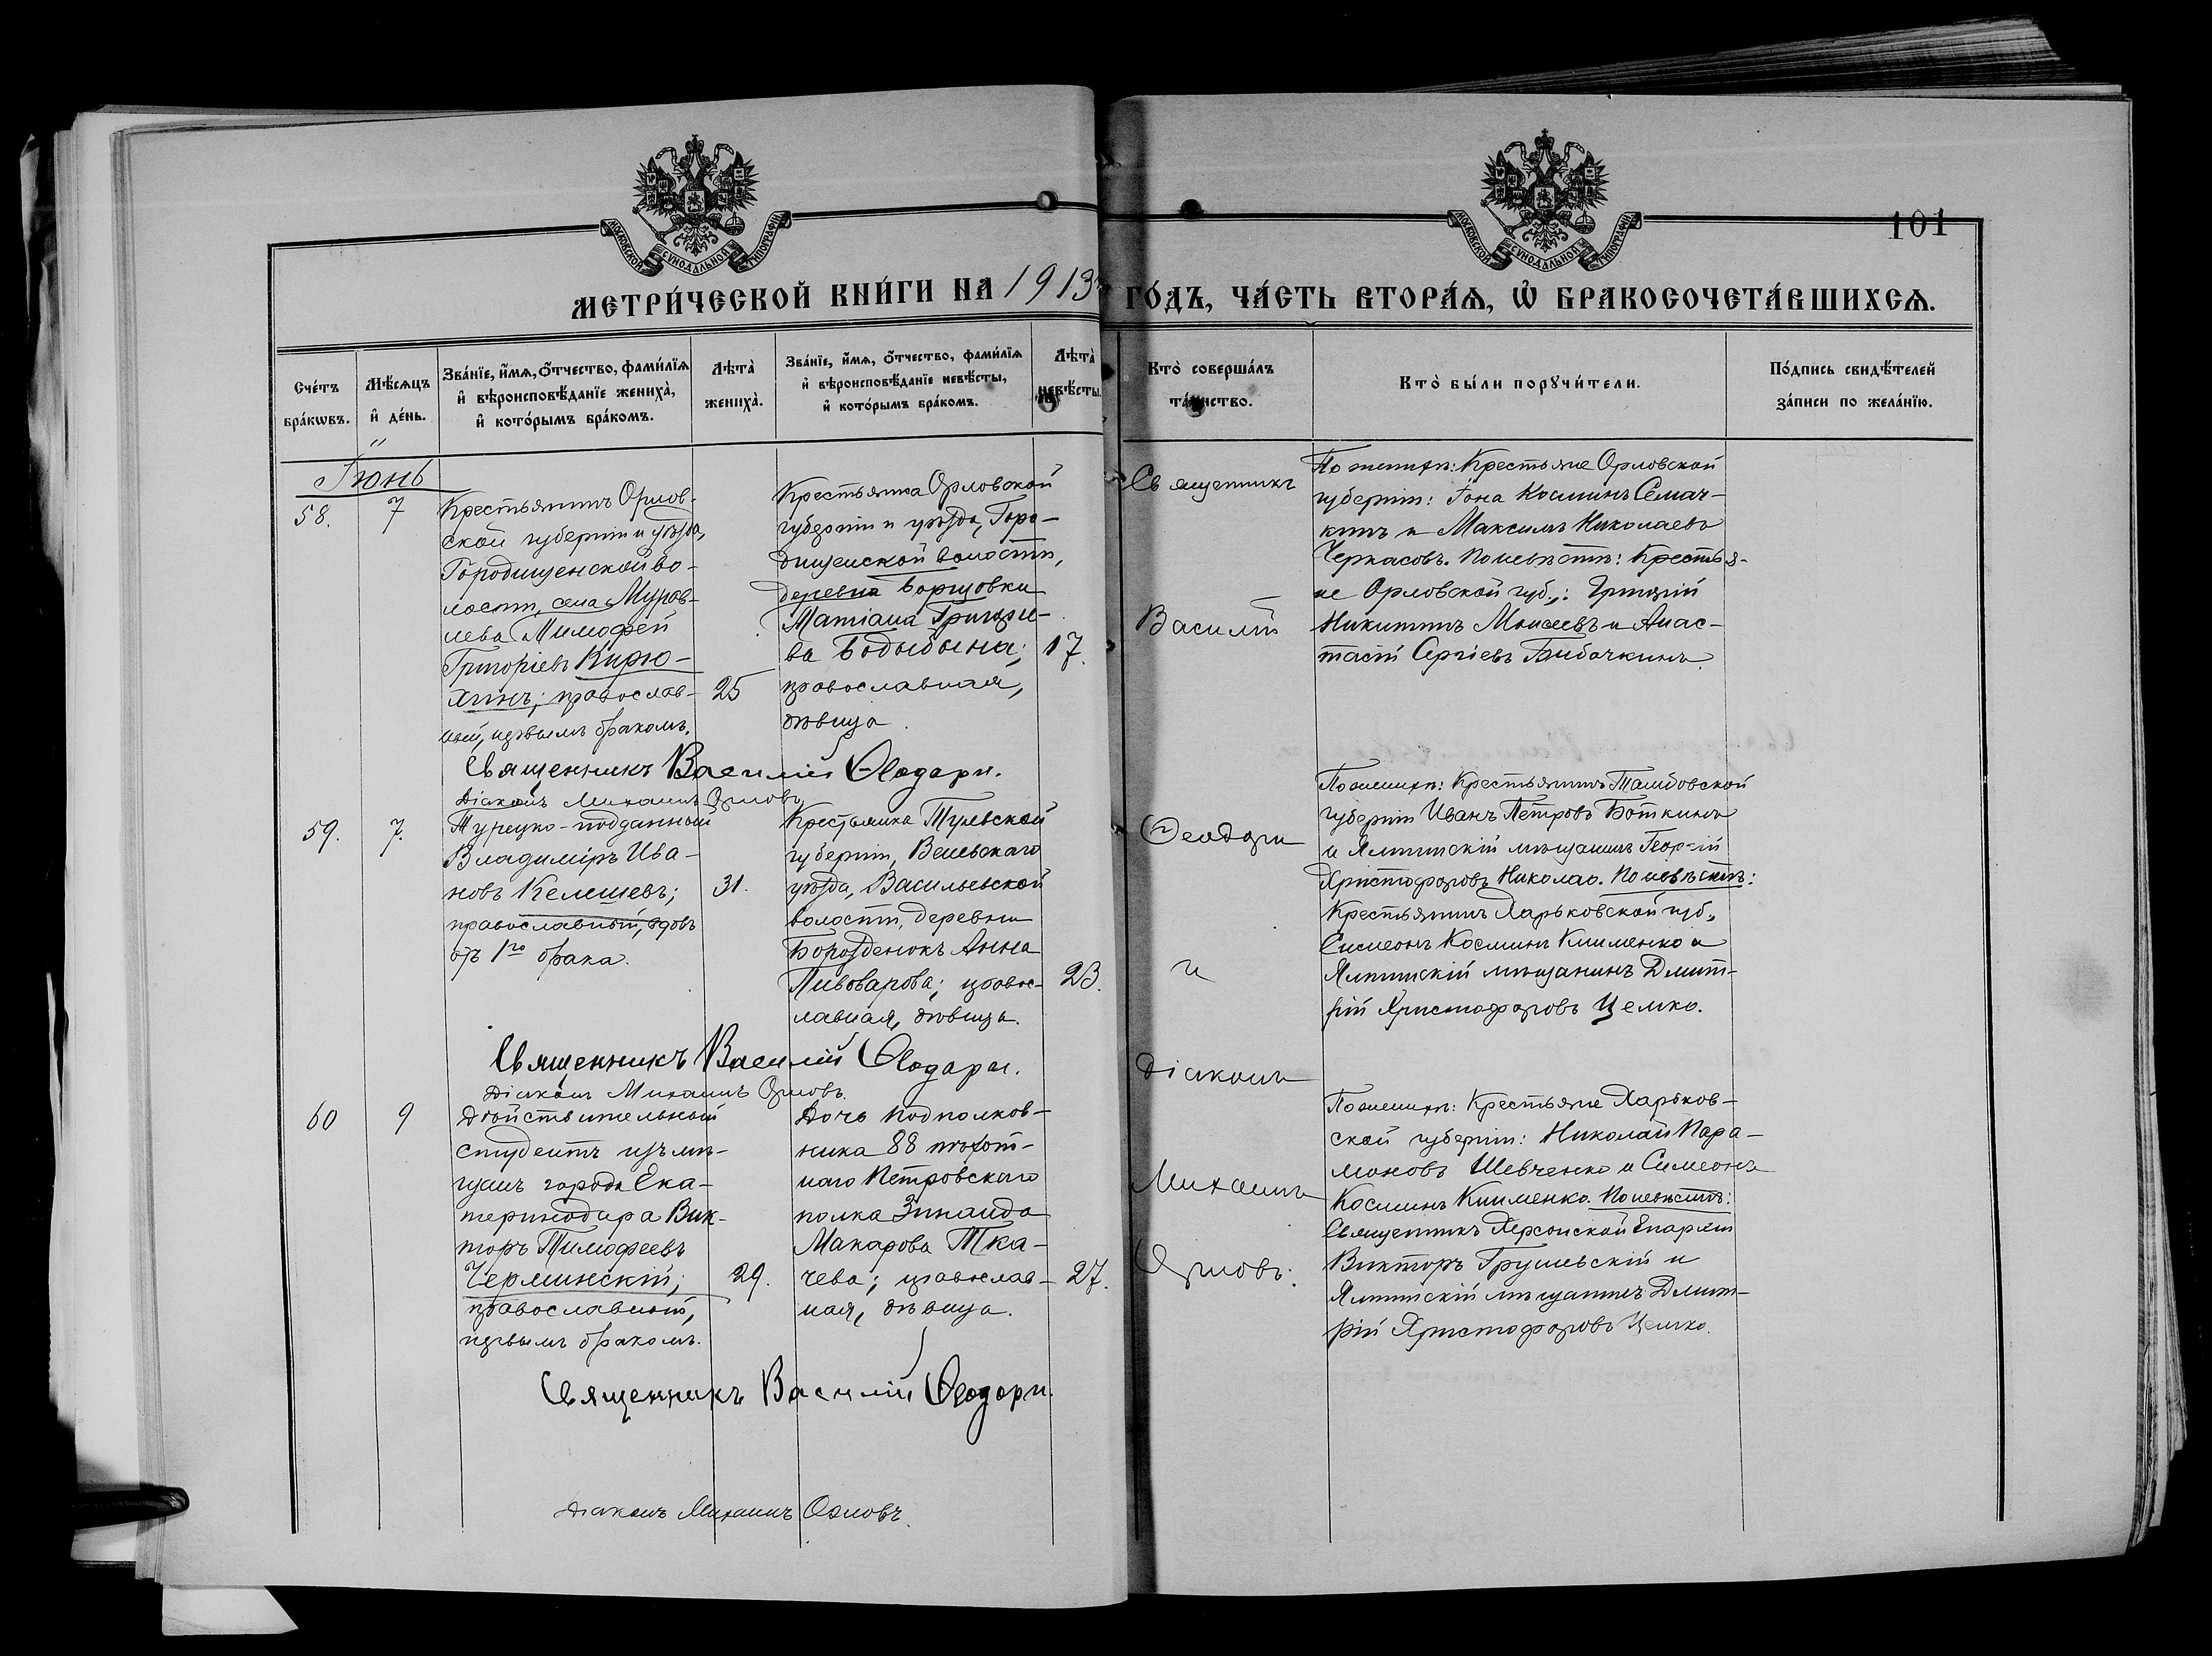 МОСКОВСКОЙ СѴНОДАЛЬНОЙ ТИПОГРАФІИ
МОСКОВСКОЙ СѴНОДАЛЬНОЙ ТИПОГРАФІИ
101
МЕТРИ́ЧЕСКОЙ КНИ́ГИ НА 1913 ГО́ДЪ, ЧА́СТЬ ВТОРА́Ѧ, Ѡ҆ БРАКОСОЧЕТА́ВШИХСѦ.
Сче́тъ бра́кѡвъ.
Мѣ́сѧцъ и҆ де́нь.
Зва́нїе, и҆́мѧ, ѻ҆́тчество, фами́лїѧ и҆ вѣроисповѣ́данїе жениха̀, и҆ кото́рымъ бра́комъ.
Лѣта̀ жениха̀.
Зва́нїе, и҆́мѧ, ѻ҆́тчество, фами́лїѧ и҆ вѣроисповѣ́данїе невѣ́сты, и҆ кото́рымъ бра́комъ.
Лѣта̀ невѣ́сты.
Кто̀ соверша́лъ та́инство.
Кто̀ бы́ли порꙋчи́тели.
По́дпись свидѣ́телей за́писи по жела́нїю.
Іюнь
58.
7
Крестьянинъ Орлов-
ской губерніи и уѣзда,
Городищенской во-
лости, села Муров-
лева Тимофей
Григоріевъ Кирю-
хинъ; православ-
ный, первымъ бракомъ.
25
Крестьянка Орловской
губерніи и уѣзда, Горо-
дищенской волости,
деревни Борщовки
Татіана Григорье-
ва Бодыбина;
православная,
дѣвица.
17.
Священникъ
Василій
Ѳеодори
и
Діаконъ
Михаилъ
Орловъ.
По женихѣ: Крестьяне Орловской
губерніи: Іона Косминъ Семич-
кинъ и Максимъ Николаевъ
Черкасовъ. По невѣстѣ: Крестья-
не Орловской губ.: Григорій
Никитинъ Моисеевъ и Анас-
тасій Сергіевъ Бабочкинъ.
Священникъ Василій Ѳеодори.
Діаконъ Михаилъ Орловъ
59.
7.
Турецко-подданный
Владиміръ Ива-
новъ Келешевъ;
православный, вдовъ
отъ 1го брака.
31.
Крестьянка Тульской
губерніи, Веневскаго
уѣзда, Васильевской
волости, деревни
Бороздинокъ Анна
Пивоварова; правос-
лавная, дѣвица.
23.
По женихѣ: Крестьянинъ Тамбовской
губерніи Иванъ Петровъ Боткинъ
и Ялтинскій мѣщанинъ Георгій
Христофоровъ Николао. По невѣстѣ:
Крестьянинъ Харьковской губ.
Симеонъ Косминъ Клименко и
Ялтинскій мѣщанинъ Дмит-
рій Христофоровъ Цемко.
Священникъ Василій Ѳеодори.
Діаконъ Михаилъ Орловъ.
60
9
Дѣйствительный
студентъ изъ мѣ-
щанъ города Ека-
теринодара Вик-
торъ Тимофеевъ
Черминскій;
православный,
первымъ бракомъ.
29.
Дочь подполков-
ника 88 пѣхот-
наго Петровскаго
полка Зинаида
Макарова Тка-
чева; православ-
ная, дѣвица.
27.
По женихѣ: Крестьяне Харьков-
ской губерніи: Николай Пара-
моновъ Шевченко и Симеонъ
Косминъ Клименко. По невѣстѣ:
Священникъ Херсонской Епархіи
Викторъ Грушевскій и
Ялтинскій мѣщанинъ Дмит-
рій Христофоровъ Цемко.
Священникъ Василій Ѳеодори.
Діаконъ Михаилъ Орловъ.